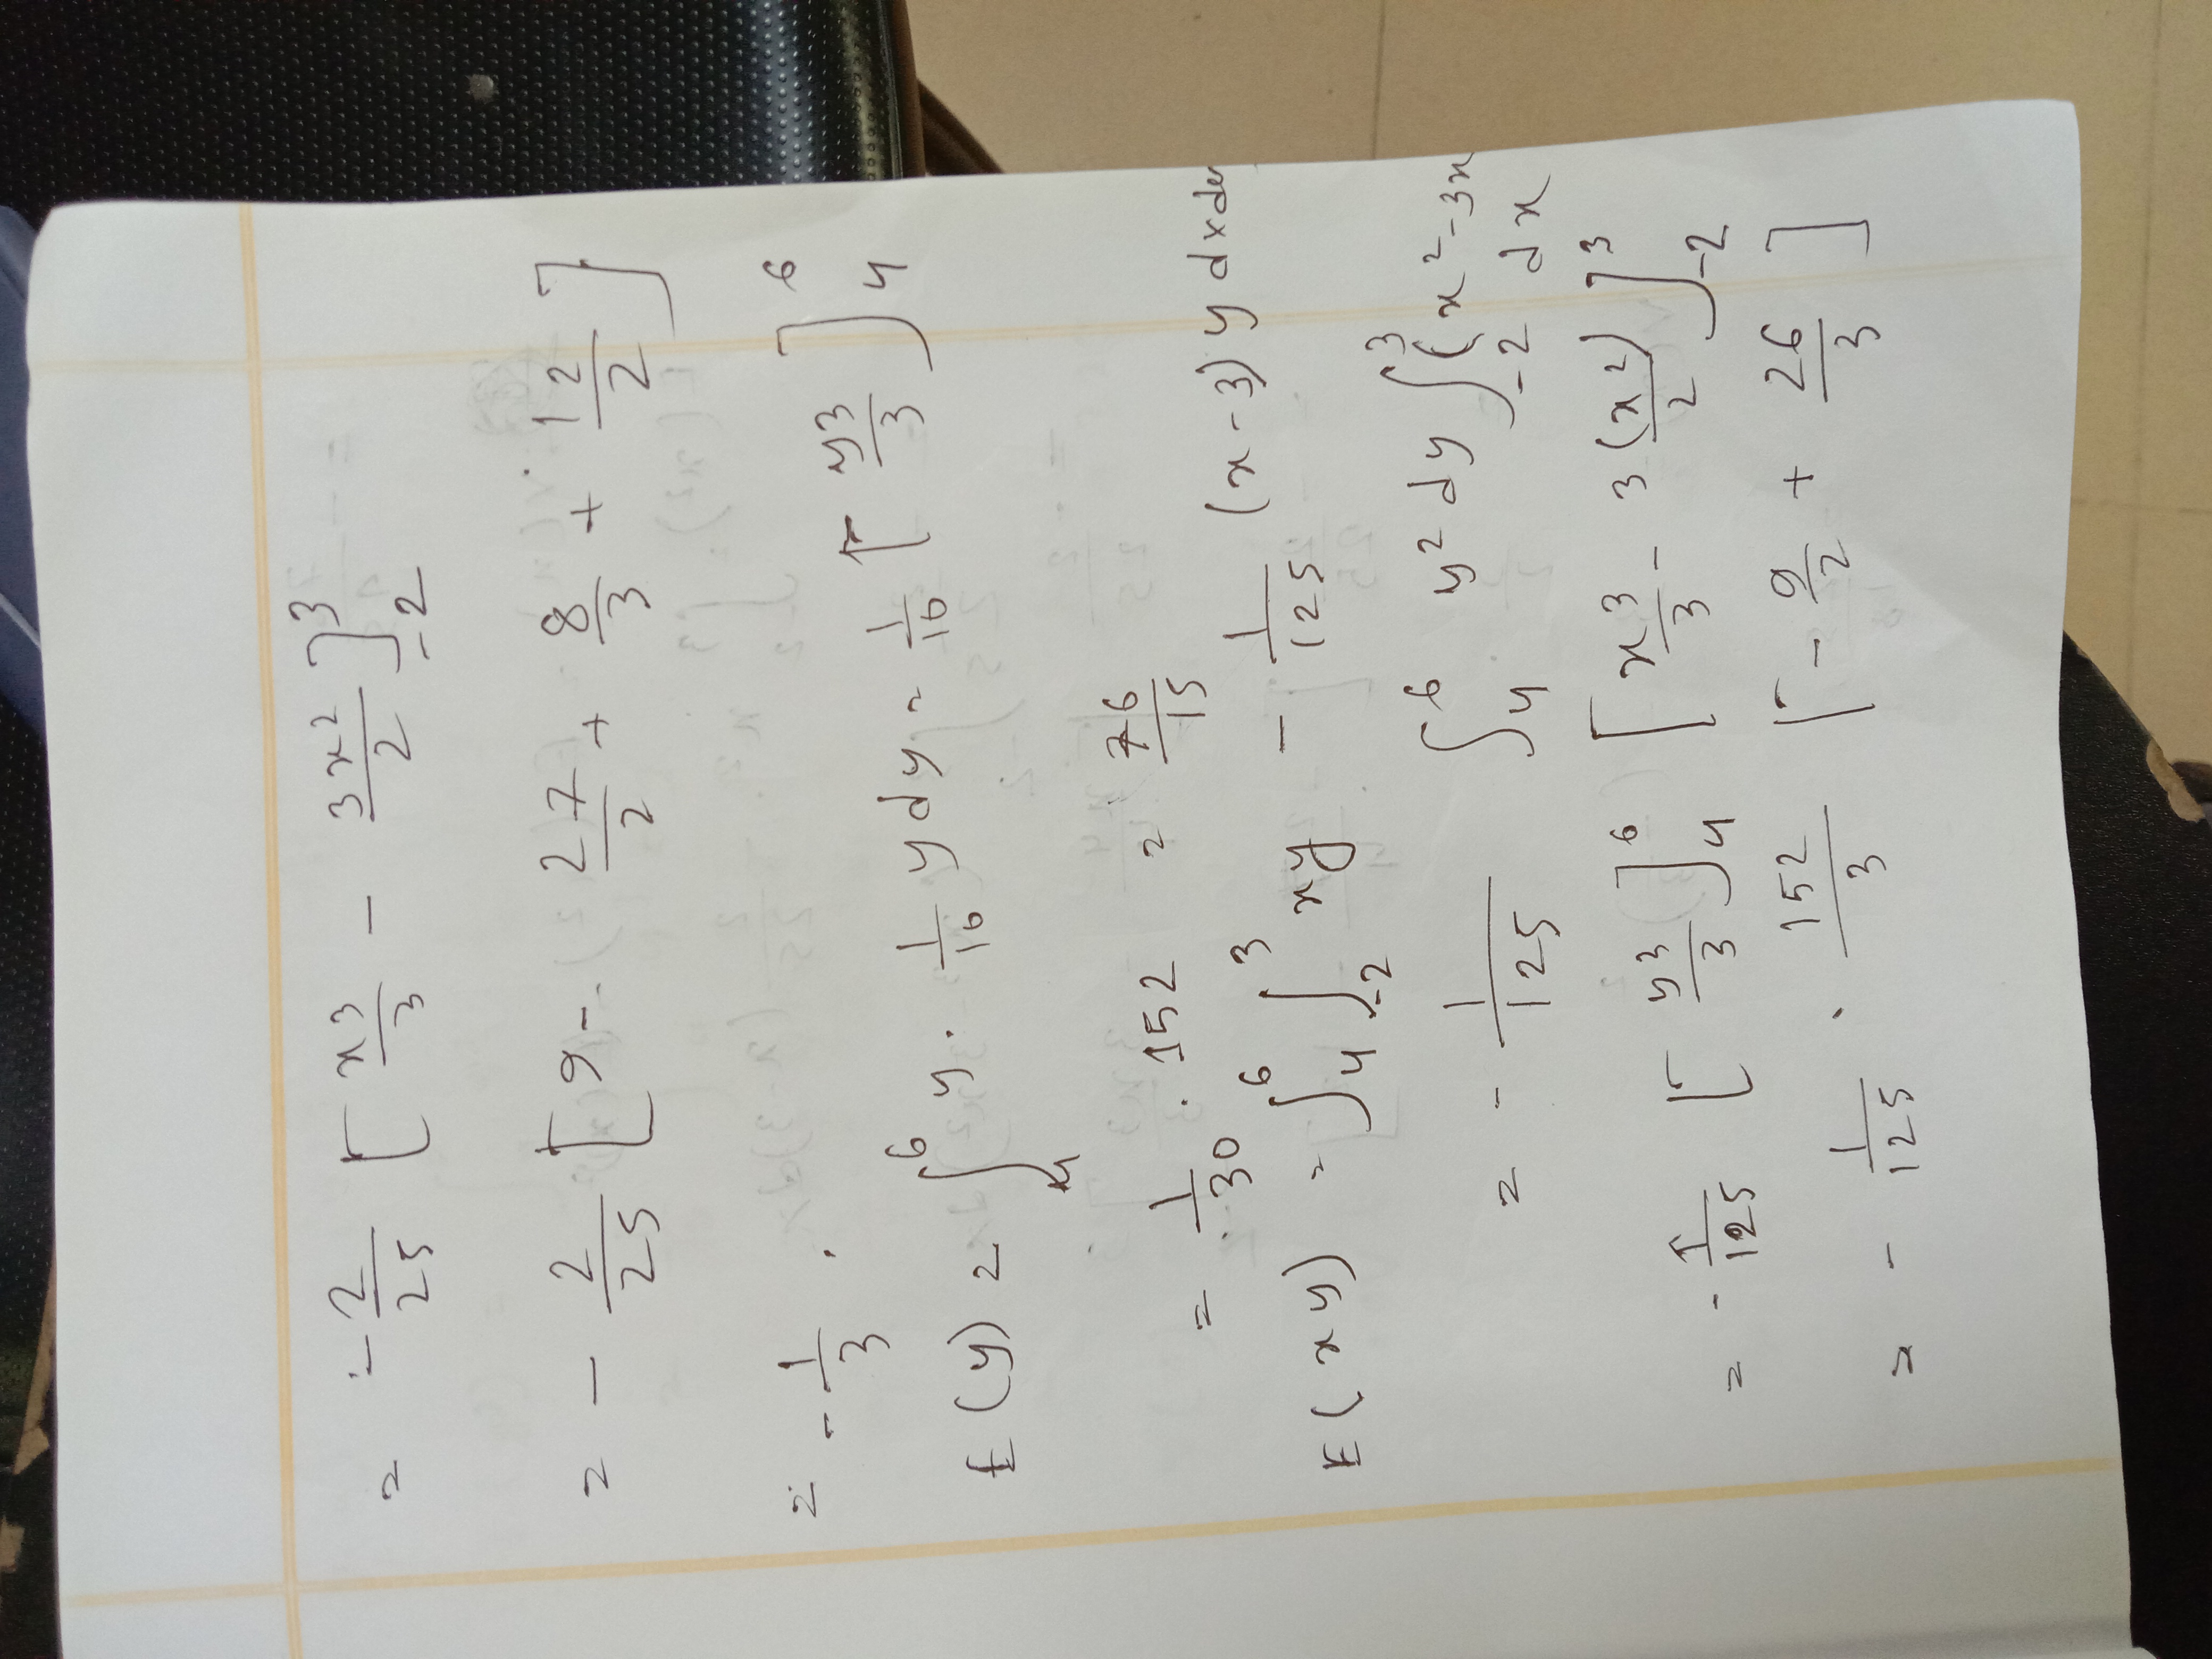 = - 2/25 [ x³/3 - 3x²/2 ]³₋₂
= - 2/25 [ 9 - 27/2 + 8/3 + 12/2 ]
= - 1/3 .
E(y) = ∫₄⁶ y . 1/10 y dy = 1/10 [ y³/3 ]⁶₄
= 1/30 . 152 = 76/15
E(xy) = ∫₄⁶ ∫₋₂³ xy - 1/125 (x-3) y dx dy
= - 1/125 ∫₄⁶ y² dy ∫₋₂³ (x² - 3x
dx
= - 1/125 [ y³/3 ]⁶₄ [ x³/3 - 3(x²)/2 ]³₋₂
= - 1/125 . 152/3 [ - 9/2 + 26/3 ]